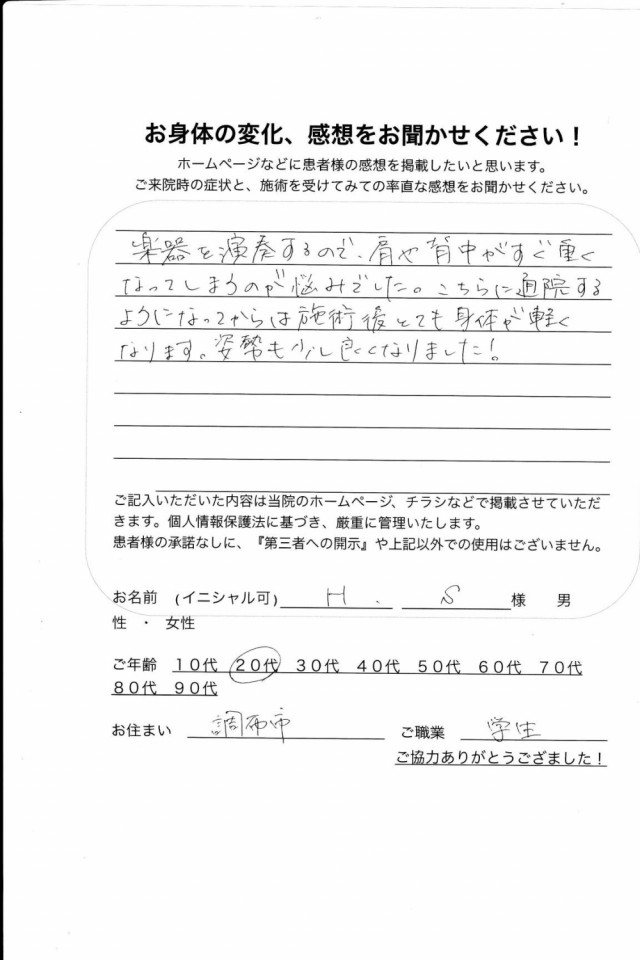 お身体の変化、感想をお聞かせください！
ホームページなどに患者様の感想を掲載したいと思います。
ご来院時の症状と、施術を受けてみての率直な感想をお聞かせください。
楽器を演奏するので、肩や背中がすぐ重く
なってしまうのが悩みでした。こちらに通院する
ようになってからは施術後とても身体が軽く
なります。姿勢も少し良くなりました！
ご記入いただいた内容は当院のホームページ、チラシなどで掲載させていただ
きます。個人情報保護法に基づき、厳重に管理いたします。
患者様の承諾なしに、『第三者への開示』や上記以外での使用はございません。
お名前 (イニシャル可) H . S 様 男
性 ・ 女性
ご年齢 １０代 ２０代 ３０代 ４０代 ５０代 ６０代 ７０代
８０代 ９０代
お住まい 調布市 ご職業 学生
ご協力ありがとうござました！